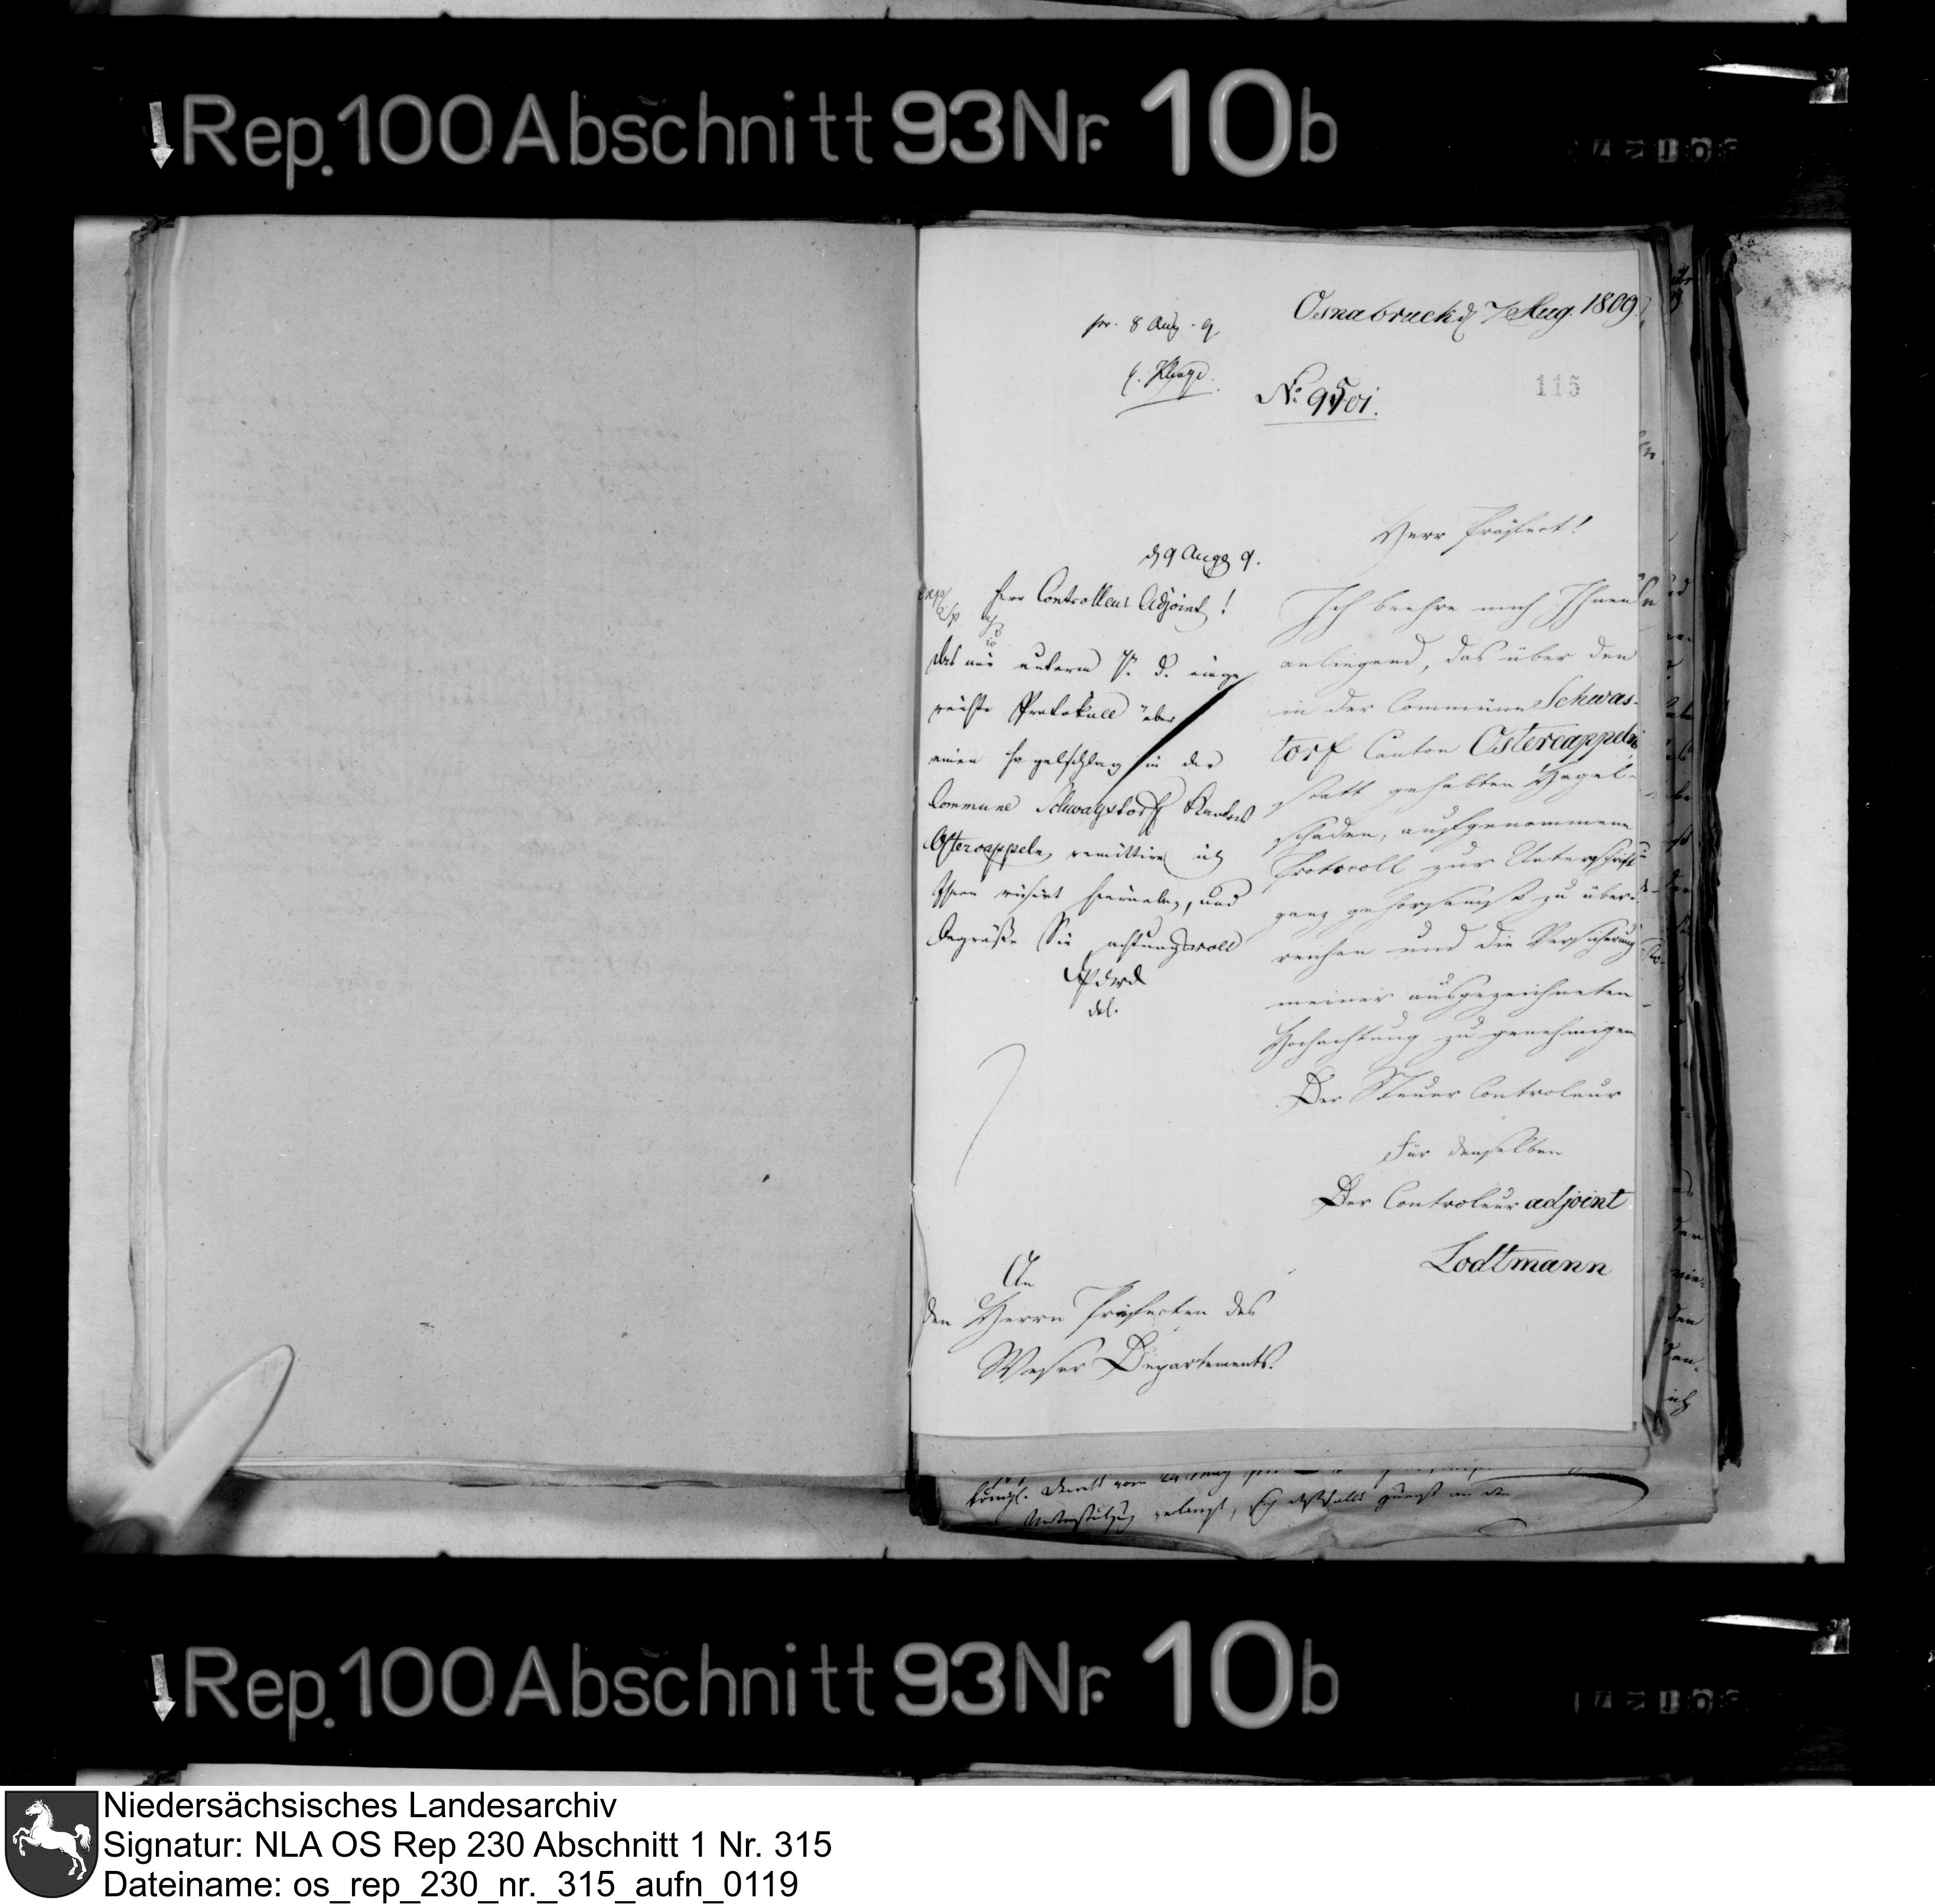 Rep. 100 Abschnitt 93 Nr. 10b
Osnabruck d 7 Aug. 1809.
pr. 8 Aug. 9
No. 9501.
115
Herr Präfect!
Ich beehre mich Ihnen
anliegend, das über den
in der Commüne Schwas-
torf Canton Ostercappeln
statt gehabten Hagel-
schaden, aufgenommene
Protocoll zur Unterschrift
ganz gehorsamst zu über-
reichen und die Versicherung
meiner ausgezeichneten
Hochachtung zu genehmigen
Der Steuer Controleur
Für denselben
Der Controleur adjoint
Lodtmann
An
den Herrn Präfecten des
Weser Departements.
d 9 Aug 9.
Herr Controlleur Adjoint!
Das mir unterm 7. d. einge
reichte Protokoll über
einen Hagelschlag in der
Commune Schwagstorf Kantons
Ostercappeln remittire ich
Ihnen visirt hierneben, und
begrüße Sie achtungsvoll
del.
Königl. Decrets vom
Unterstützung verlangt, sich deshalb zuerst an den
Rep. 100 Abschnitt 93 Nr. 10b
Niedersächsisches Landesarchiv
Signatur: NLA OS Rep 230 Abschnitt 1 Nr. 315
Dateiname: os_rep_230_nr._315_aufn_0119